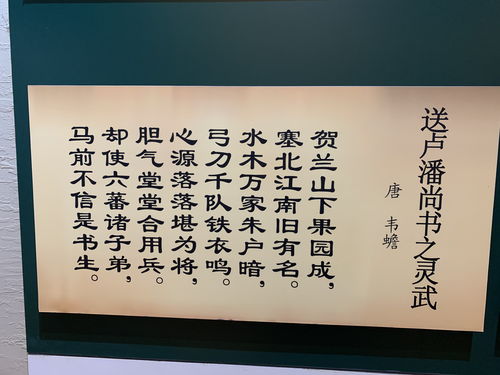 送卢潘尚书之灵武
唐 韦蟾
贺兰山下果园成，
塞北江南旧有名。
水木万家朱户暗，
弓刀千队铁衣鸣。
心源落落堪为将，
胆气堂堂合用兵。
却使六蕃诸子弟，
马前不信是书生。